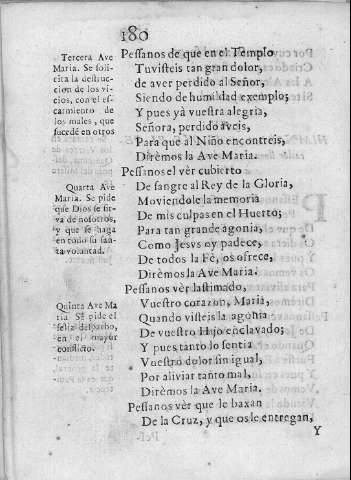 180
Tercera Ave
Maria. Se soli-
cita la destruc-
cion de los vi-
cios, con el es-
carmiento de
los males, que
sucedé en otros
Pessanos de que en el Templo
Tuvisteis tan gran dolor,
de aver perdido al Señor,
Siendo de humildad exemplo;
Y pues yà vuestra alegria,
Señora, perdido aveis,
Para que al Niño encontreis,
Dirèmos la Ave Maria.
Quarta Ave
Maria. Se pide
que Dios se sir-
va de nosotros,
y que se haga
en todo su san-
ta voluntad.
Pessanos el vèr cubierto
De sangre al Rey de la Gloria,
Moviendole la memoria
De mis culpas en el Huerto;
Para tan grande agonia,
Como Jesvs oy padece,
De todos la Fè, os ofrece,
Dirèmos la Ave Maria.
Quinta Ave Ma
ria. Se pide el
feliz despacho,
en el mayor
conflicto.
Pessanos vèr lastimado,
Vuestro corazon, Maria,
Quando visteis la agonia
De vuestro Hijo enclavado;
Y pues tanto lo sentia
Vuestro dolor sin igual,
Por aliviar tanto mal,
Dirèmos la Ave Maria.
Pessanos vèr que le baxan
De la Cruz, y que os le entregan,
Y